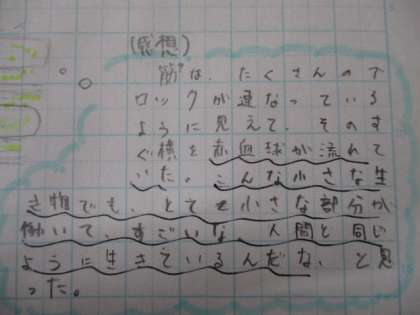 (感想)
筋は、たくさんのブ
ロックが連なっている
ように見えて、そのす
ぐ横を赤血球が流れて
いた。こんな小さな生
き物でも、とても小さな部分が
働いて、すごいな、人間と同じ
ように生きているんだな、と思
った。